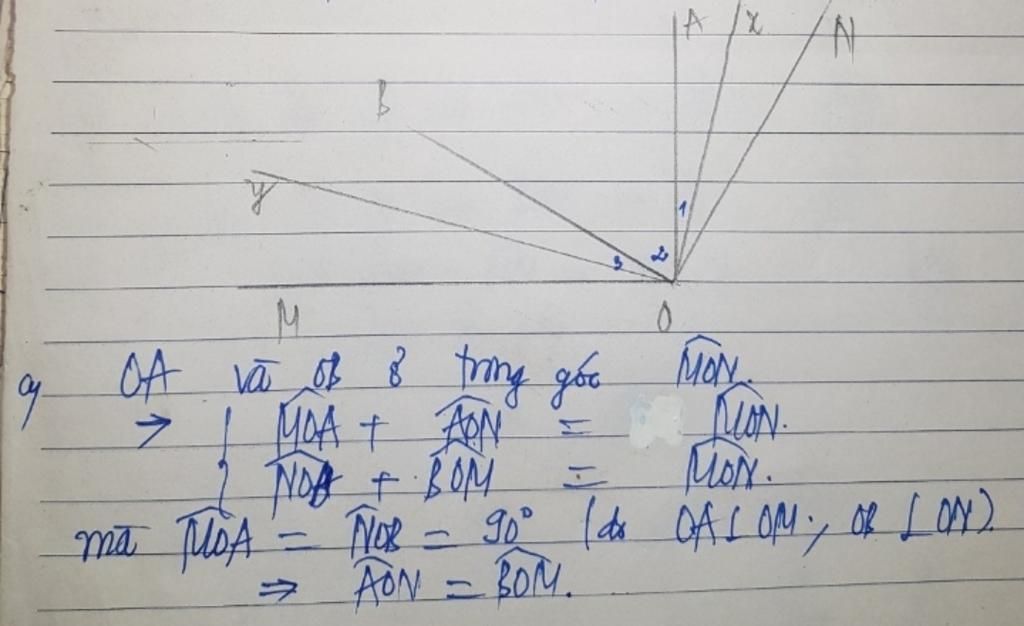 A x N
B
y
1
3 2
M O
a) OA và OB ở trong góc \widehat{MON}.
→ { \widehat{MOA} + \widehat{AON} = \widehat{MON}.
\widehat{NOB} + \widehat{BOM} = \widehat{MON}.
mà \widehat{MOA} = \widehat{NOB} = 90° (do OA ⊥ OM; OB ⊥ ON).
⇒ \widehat{AON} = \widehat{BOM}.